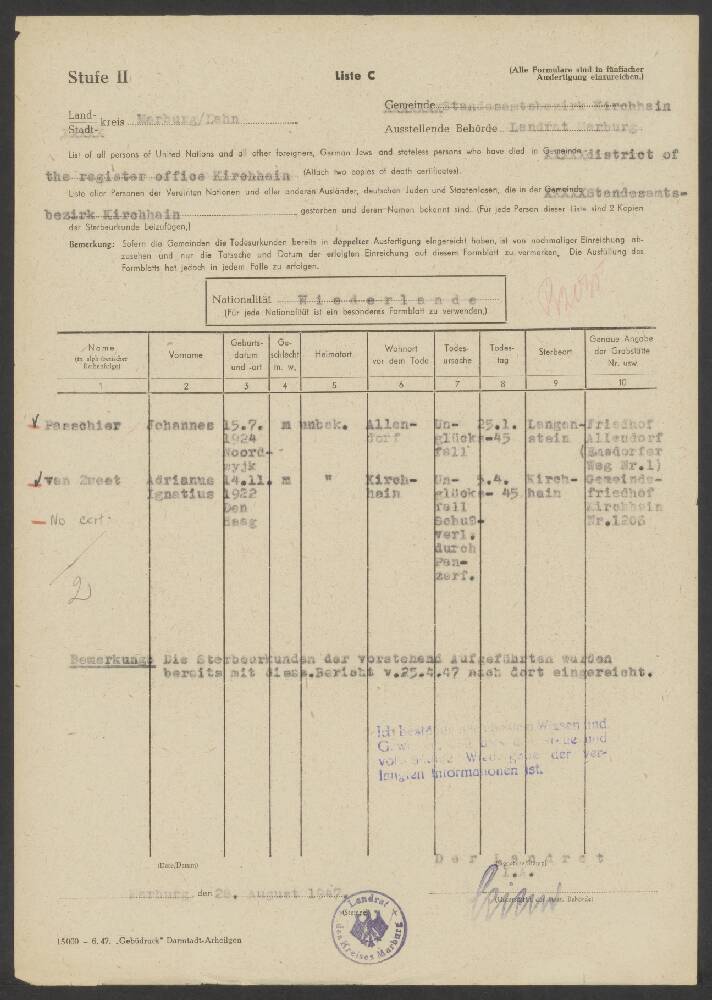 Stufe II
Liste C
(Alle Formulare sind in fünffacher
Ausfertigung einzureichen.)
Land-
Stadt-
kreis Marburg/Lahn
Gemeinde Standesamtsbezirk Kirchhain
Ausstellende Behörde Landrat Marburg.
List of all persons of United Nations and all other foreigners, German Jews and stateless persons who have died in Gemeinde district of
the register office Kirchhain (Attach two copies of death certificates).
Liste aller Personen der Vereinten Nationen und aller anderen Ausländer, deutschen Juden und Staatenlosen, die in der Gemeinde Standesamts=
bezirk Kirchhain gestorben und deren Namen bekannt sind. (Für jede Person dieser Liste sind 2 Kopien
der Sterbeurkunde beizufügen.)
Bemerkung: Sofern die Gemeinden die Todesurkunden bereits in doppelter Ausfertigung eingereicht haben, ist von nochmaliger Einreichung ab-
zusehen und nur die Tatsache und Datum der erfolgten Einreichung auf diesem Formblatt zu vermerken. Die Ausfüllung des
Formblatts hat jedoch in jedem Falle zu erfolgen.
Nationalität Niederlande
(Für jede Nationalität ist ein besonderes Formblatt zu verwenden.)
Name
(in alphabetischer
Reihenfolge)
Vorname
Geburts-
datum
und -ort
Ge-
schlecht
m. w.
Heimatort
Wohnort
vor dem Tode
Todes-
ursache
Todes-
tag
Sterbeort
Genaue Angabe
der Grabstätte
Nr. usw.
1 2 3 4 5 6 7 8 9 10
Passchier Johannes 15.7. m unbek. Allen- Un- 25.1. Langen- Friedhof
1924 dorf glücks -45 stein Allendorf
Noord- fall (Ensdorfer
wyjk Weg Nr.1)
van Zweet Adrianus 14.11. m " Kirch- Un- 5.4. Kirch- Gemeinde-
Ignatius 1922 hain glücks- 45 hain friedhof
Den fall Kirchhain
Haag Schuß- Nr.1206
No cert.
verl.
durch
Pan-
zerf.
2)
Bemerkung: Die Sterbeurkunden der vorstehend Aufgeführten wurden
bereits mit diess.Bericht v.25.4.47 nach dort eingereicht.
Ich bestä Wissen und
Gew und
der ver-
langten Informationen ist.
Der Landrat
I.A.
(Date/Datum)
Marburg, den 28. August 1947.
Landrat
des Kreises Marburg
15000 – 6. 47. „Gebädruck" Darmstadt-Arheilgen